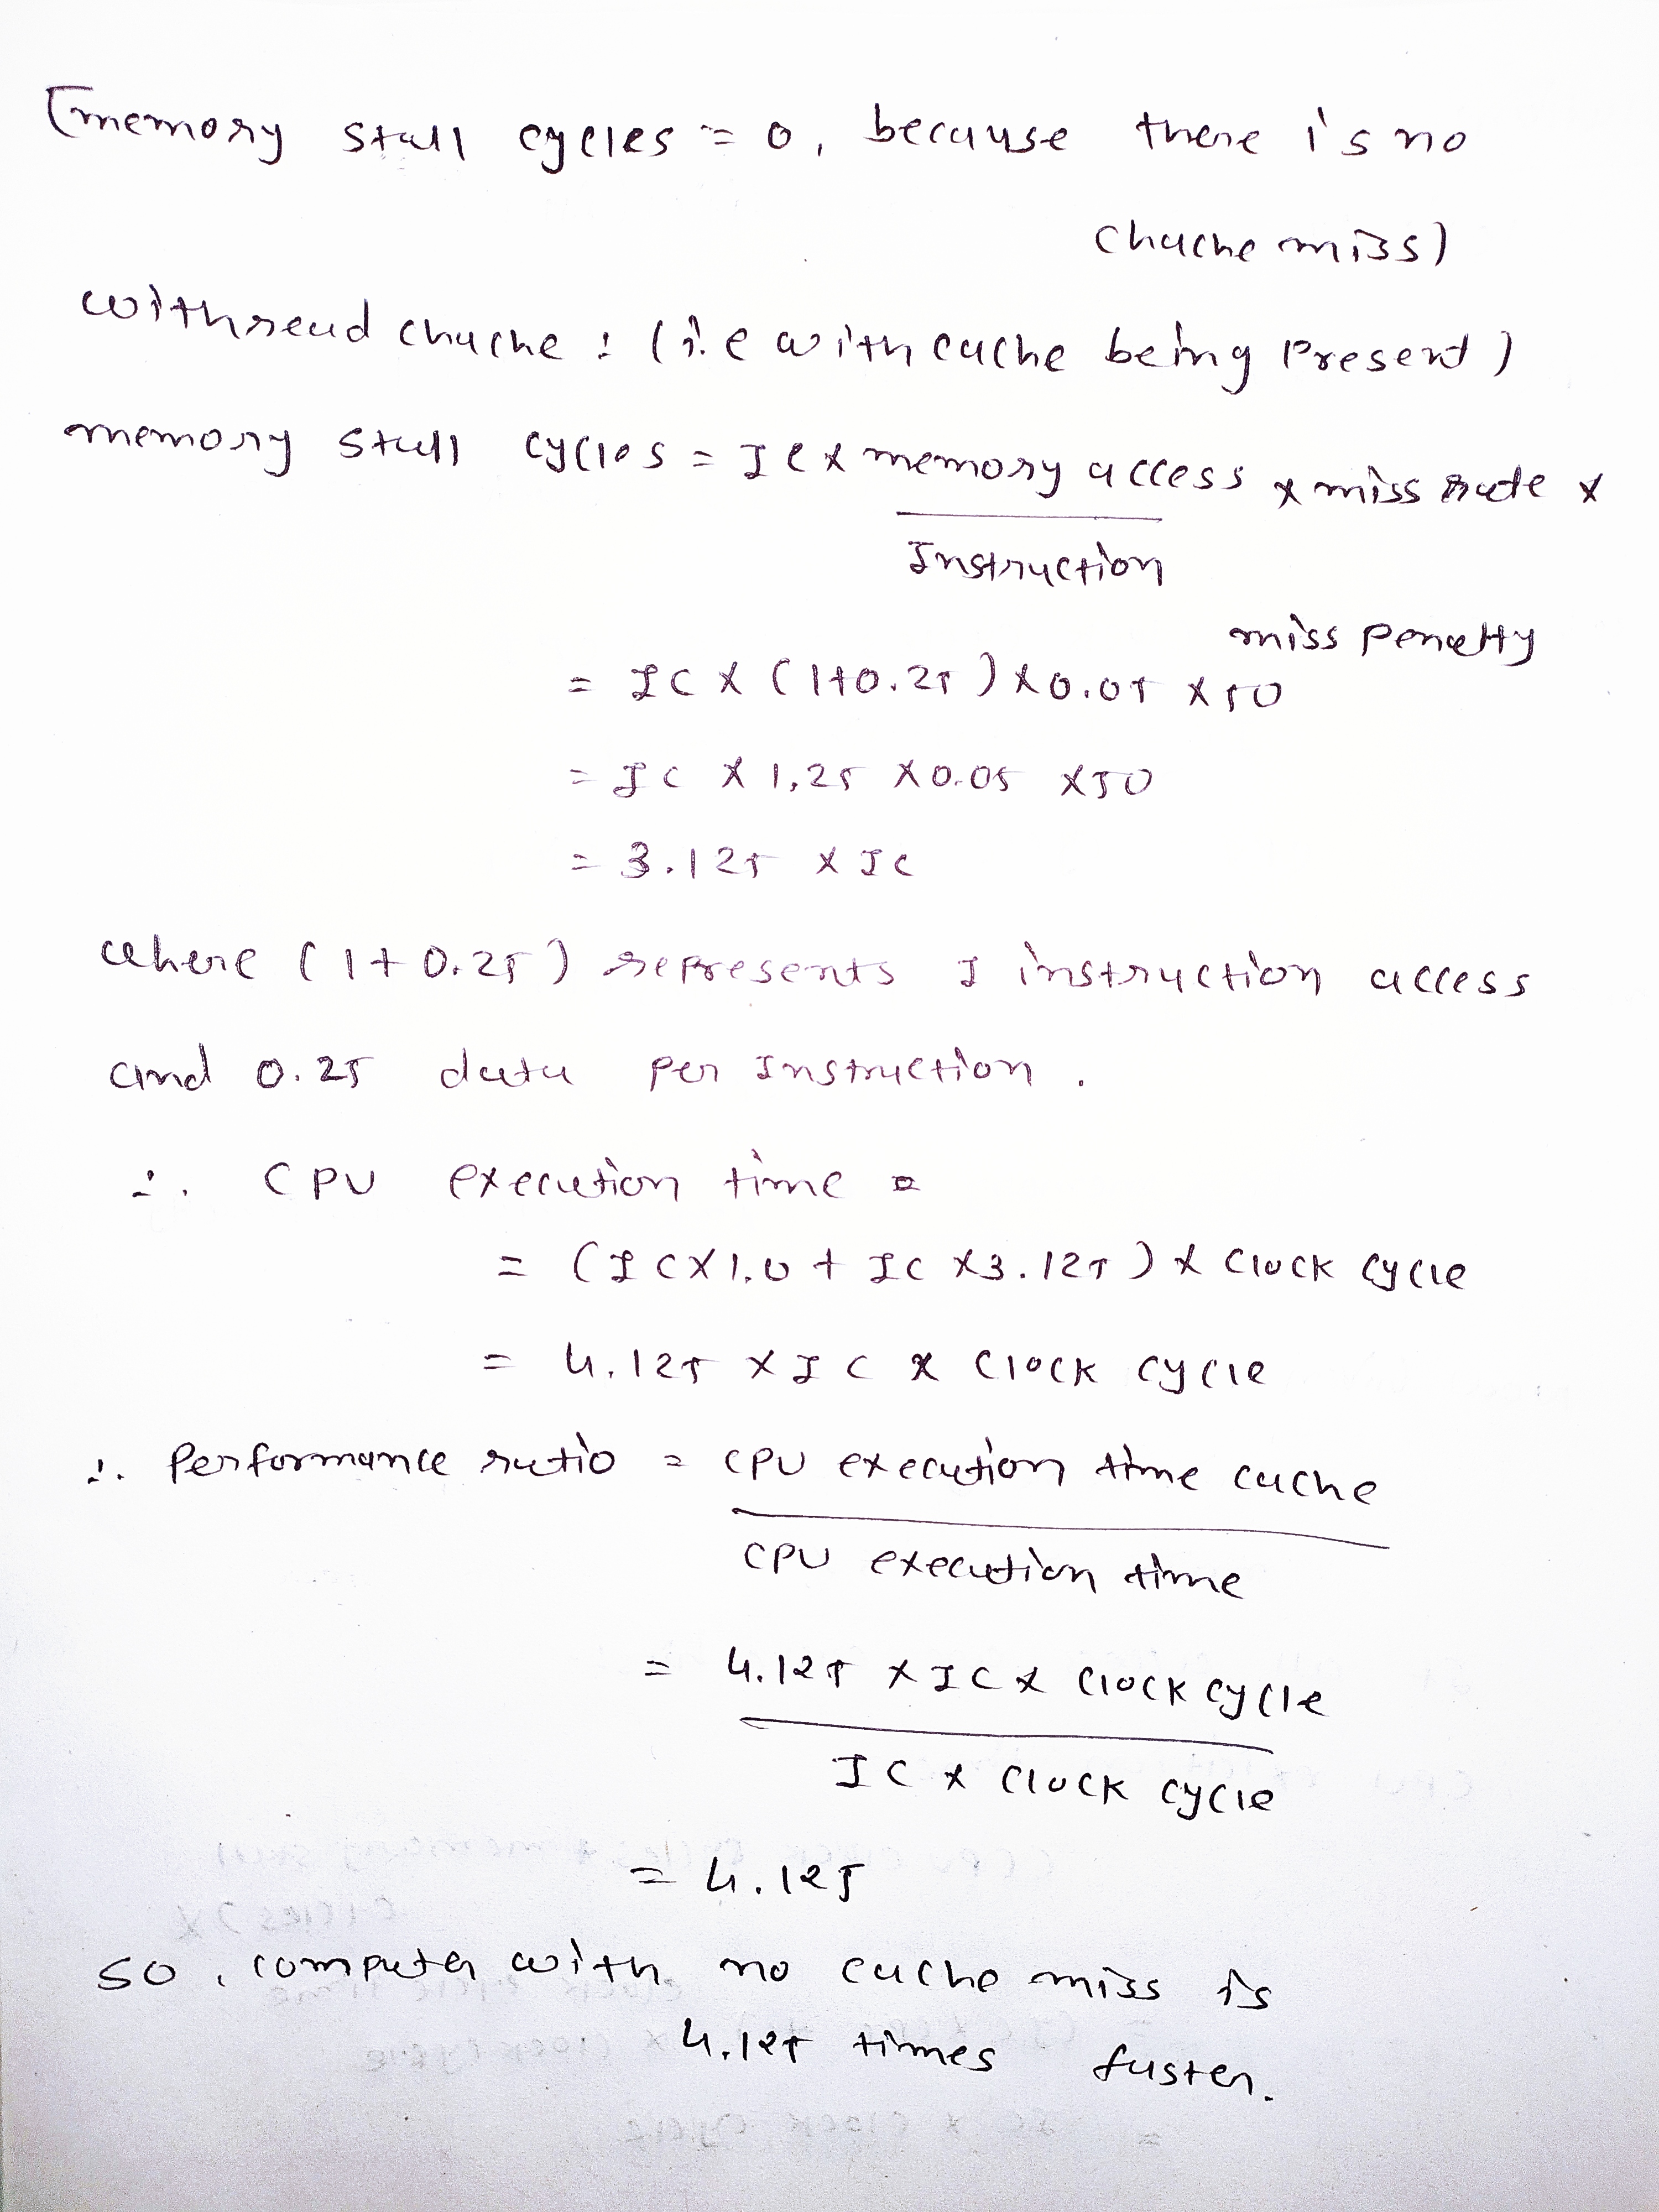 [memory stall cycles = 0, because there is no
chache miss)
with read chache : (i.e with cache being present)
memory stall cycles = IC x memory access x miss rate x
Instruction
miss penalty
= IC x (1+0.25) x 0.05 x 50
= IC x 1.25 x 0.05 x 50
= 3.125 x IC
where (1+0.25) represents 1 instruction access
and 0.25 data per Instruction.
∴ CPU execution time =
= (IC x 1.0 + IC x 3.125) x clock cycle
= 4.125 x IC x clock cycle
∴ Performance ratio = CPU execution time cache
CPU execution time
= 4.125 x IC x clock cycle
IC x clock cycle
= 4.125
so, computer with no cache miss is
4.125 times faster.